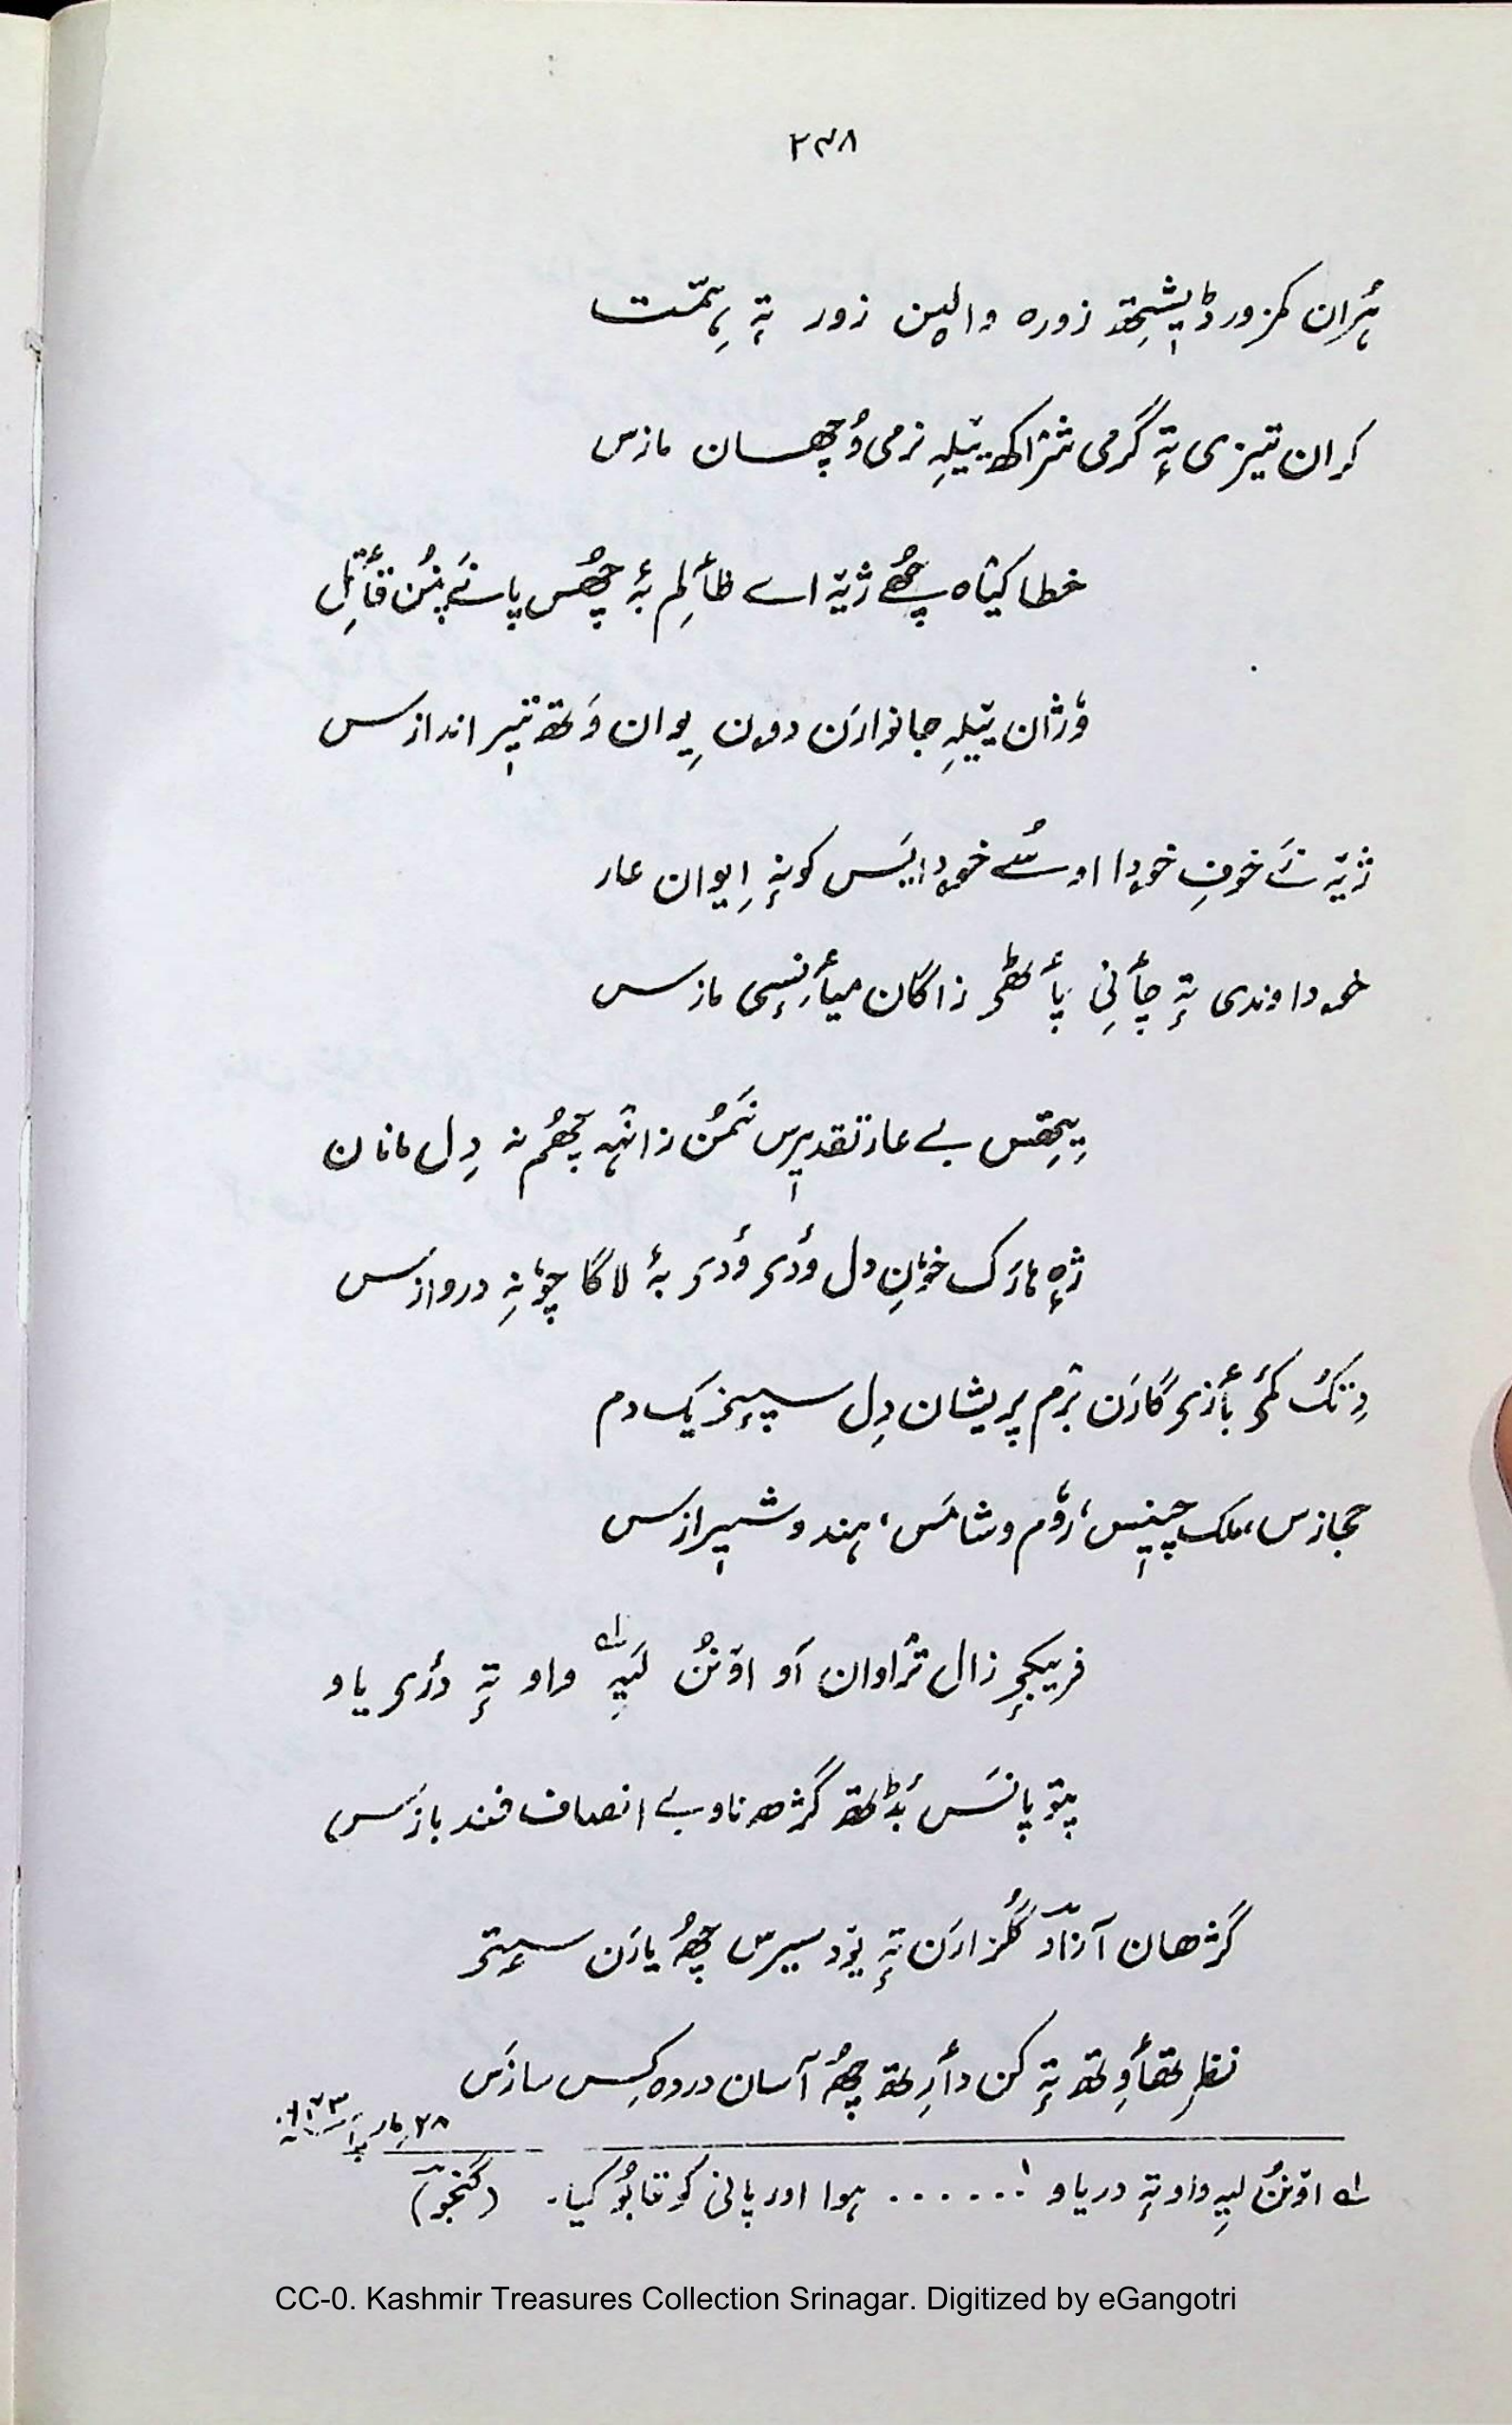 ۲۴۸
ہُران کمزور ڈیٖشِتھ زورہ والین زور تہٕ ہِمّت
کران تیزی تہٕ گرمی شزاکھ ییٚلہِ نرمی وُچھان مازس
خطا کیٛاہ چھُے ژیٚہ اے ظٲلِم بہٕ چھُس پانَے پنُن قٲتِل
وۄژان ییٚلہِ جانوارَن دۄن یِوان وَتھ تیٖر اندازس
ژیٚہ نَے خوفِ خۄدا اوسُے خۄدایَس کونہٕ اِیوان عار
خۄداوندی تہٕ چٲنِی پٲٹھۍ زاگان میٲنِسٕی مازس
پیٚتھِس بے عار تقدیٖرس نَمُن زانٛہہ چھُم نہ دِل مانان
ژہٕ مارَکھ خوٗنِ دل وٕدۍ وٕدۍ بہٕ لاگا چوٗنہِ دروازس
دِتکھ کمۍ بٲزۍ گارَن بْرم پریشان دِل سپٕنۍ یک دم
حجازس، ملک چیٖنس، روٗم و شامَس، ہند و شیٖرازس
فریبکہِ زال ترٛاوان آو اوٚنُن لَیہِ ؎۱ واو تہٕ دٔری یاو
پتو پانَس بٔڈِتھ گژھ ناو بے انصاف فند بازَس
گژھان آزادؔ گُلزارَن تہٕ یوٚد سیرس چھُ یارَن سٟتۍ
نظر تھٲوِتھ تہٕ کن دٲرِتھ چھُ آسان دردہ کِس سازَس
؎۱ اوٚنُن لیہِ واو تہٕ دریاو ...... ہوا اور پانی کو قابُو کیا۔ (گنجوؔ)
CC-0. Kashmir Treasures Collection Srinagar. Digitized by eGangotri